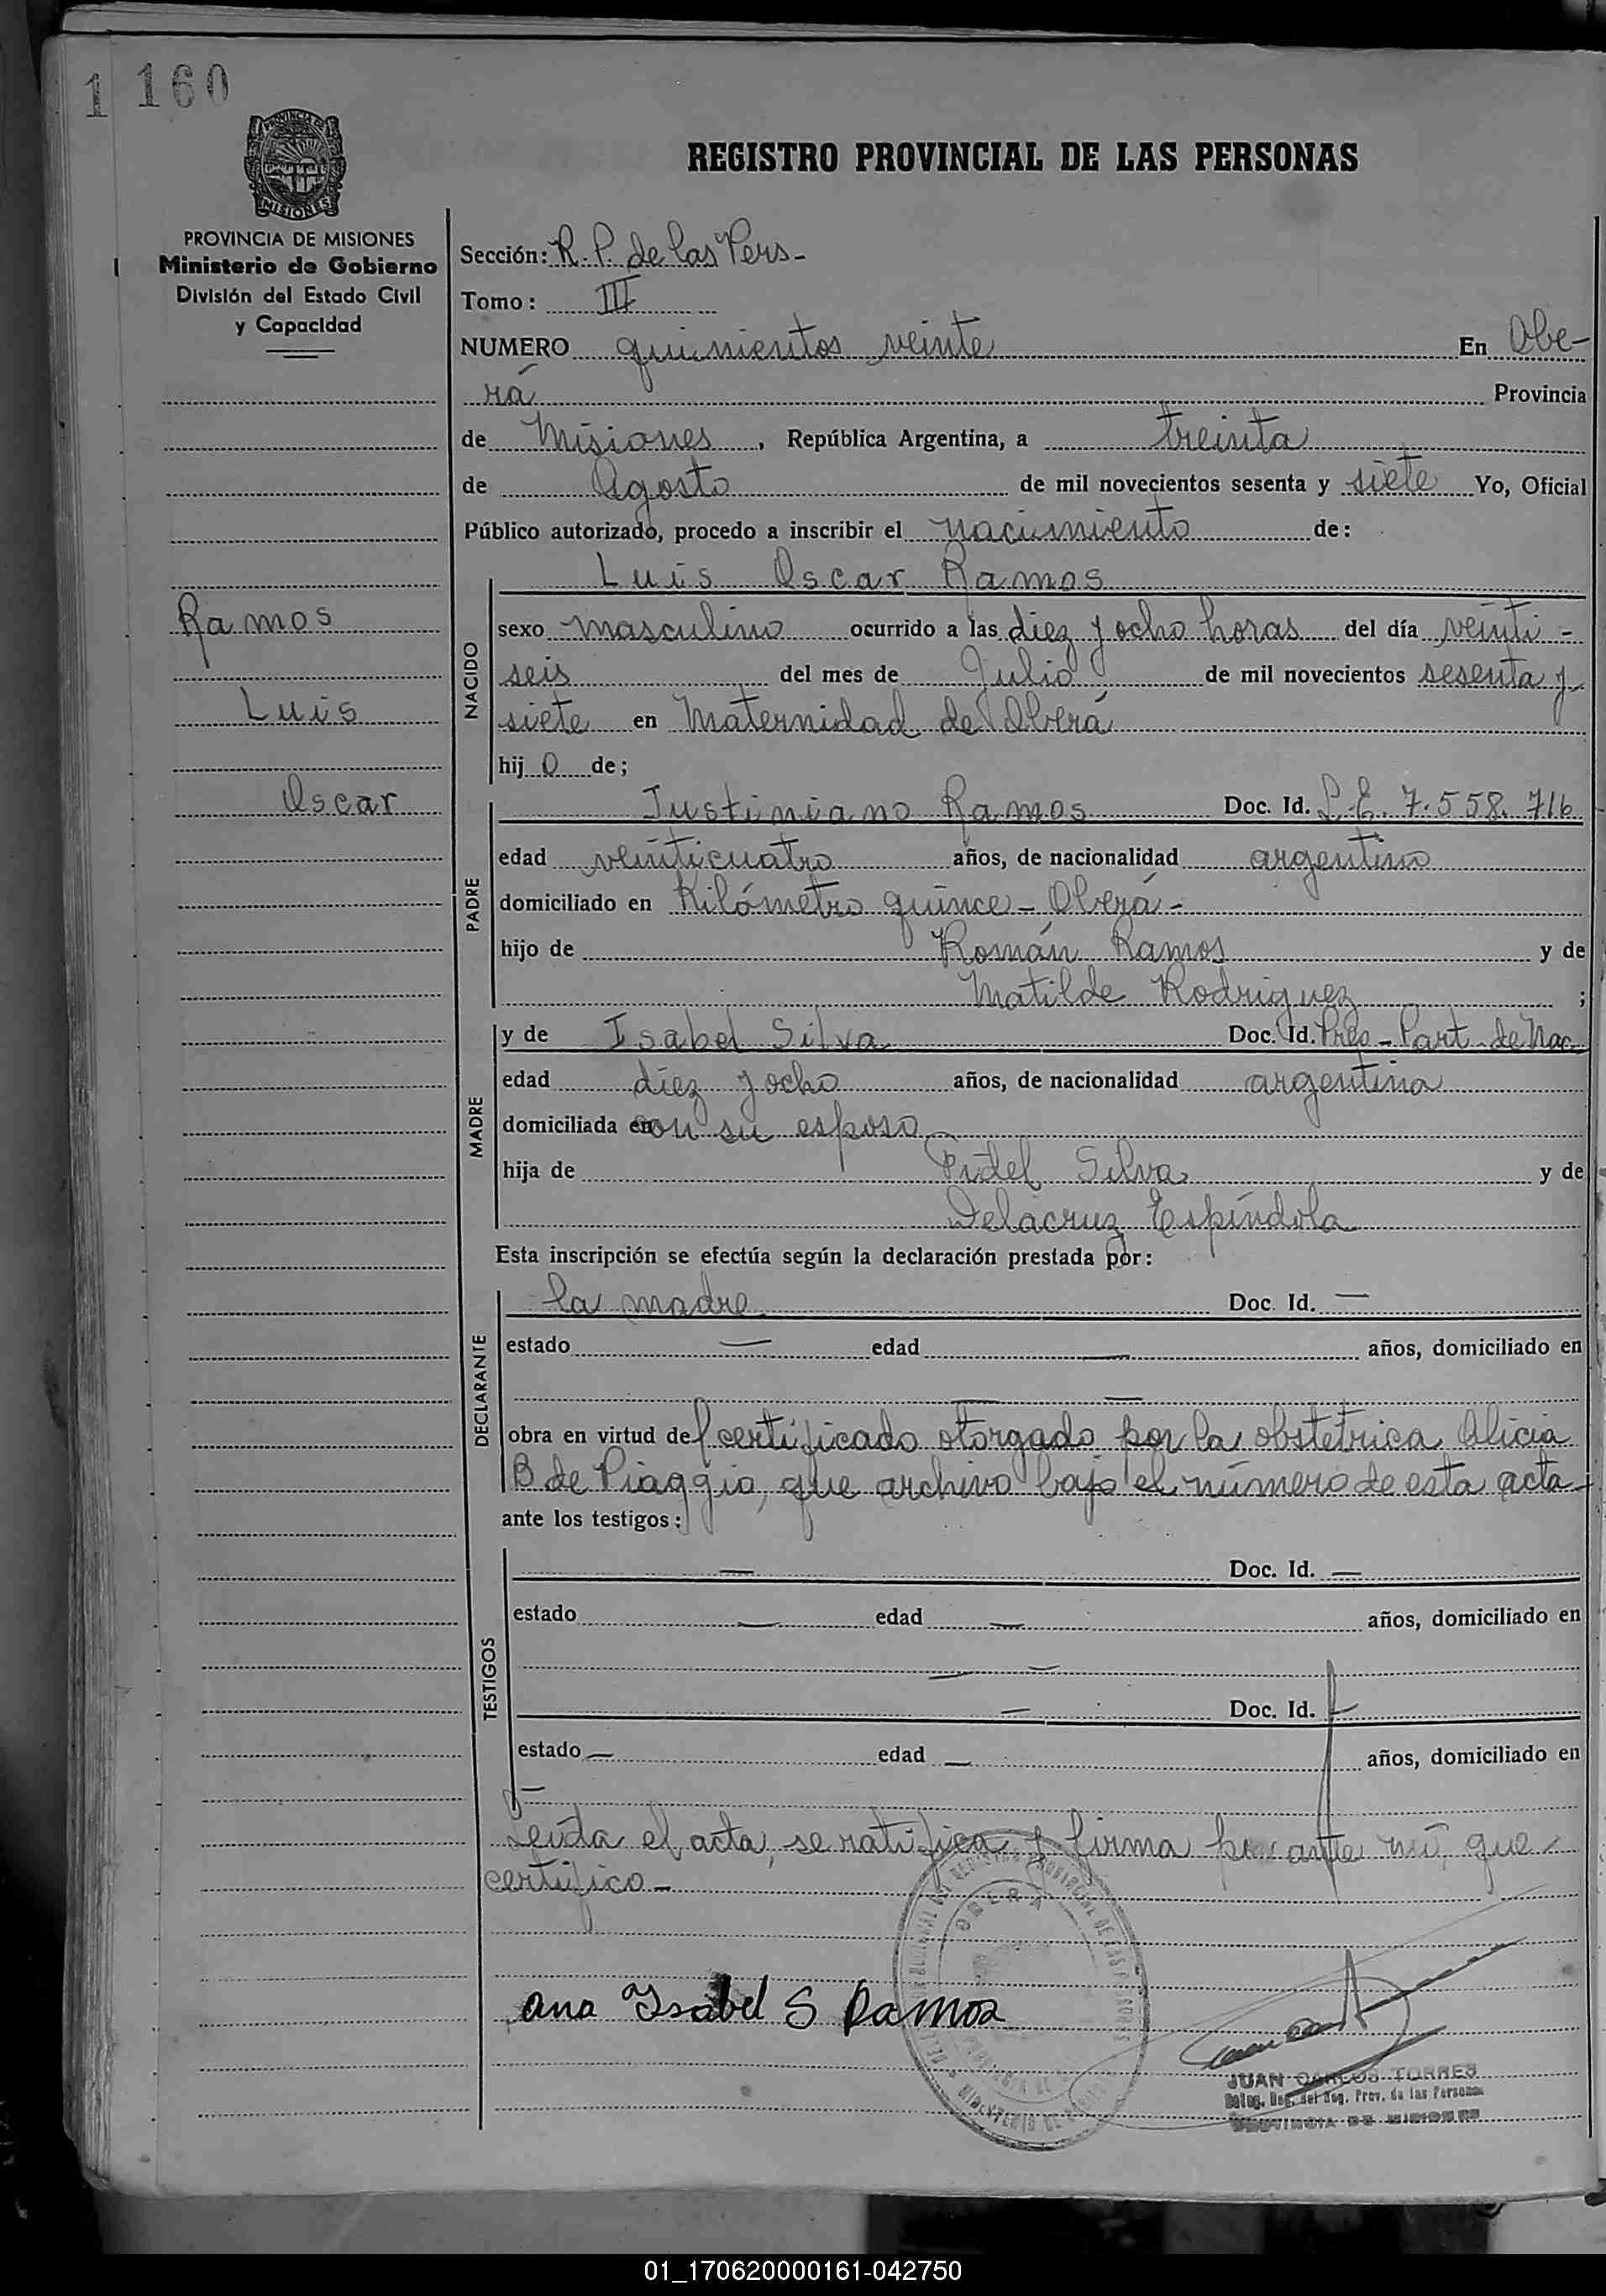 1 160
PROVINCIA DE
MISIONES
PROVINCIA DE MISIONES
Ministerio de Gobierno
División del Estado Civil
y Capacidad
Ramos
Luis
Oscar
REGISTRO PROVINCIAL DE LAS PERSONAS
Sección: R. P. de las Pers-
Tomo: III
NUMERO quinientos veinte En Obe-
rá Provincia
de Misiones, República Argentina, a treinta
de Agosto de mil novecientos sesenta y siete Yo, Oficial
Público autorizado, procedo a inscribir el nacimiento de:
Luis Oscar Ramos
NACIDO
sexo masculino ocurrido a las diez y ocho horas del día veinti-
seis del mes de Julio de mil novecientos sesenta y
siete en Maternidad de Oberá
hijo de;
PADRE
Justiniano Ramos Doc. Id. L.E. 7.558.716
edad veinticuatro años, de nacionalidad argentino
domiciliado en Kilómetro quince - Oberá -
hijo de Román Ramos y de
Matilde Rodriguez ;
MADRE
y de Isabel Silva Doc. Id. Pres - Part. de Nac.
edad diez y ocho años, de nacionalidad argentina
domiciliada en con su esposo
hija de Fidel Silva y de
Delacruz Espíndola
Esta inscripción se efectúa según la declaración prestada por:
DECLARANTE
la madre Doc. Id. —
estado — edad — años, domiciliado en
— —
obra en virtud del certificado otorgado por la obstetrica Alicia
B de Piaggio, que archivo bajo el número de esta acta -
ante los testigos:
TESTIGOS
— Doc. Id. —
estado — edad — años, domiciliado en
— —
— Doc. Id. —
estado — edad — años, domiciliado en
—
Leída el acta, se ratifica y firma por ante mí, que
certifico -
OBERA
ana Isabel S Ramos
JUAN CARLOS TORRES
Deleg. Reg. del Reg. Prov. de las Personas
PROVINCIA DE MISIONES
01_170620000161-042750